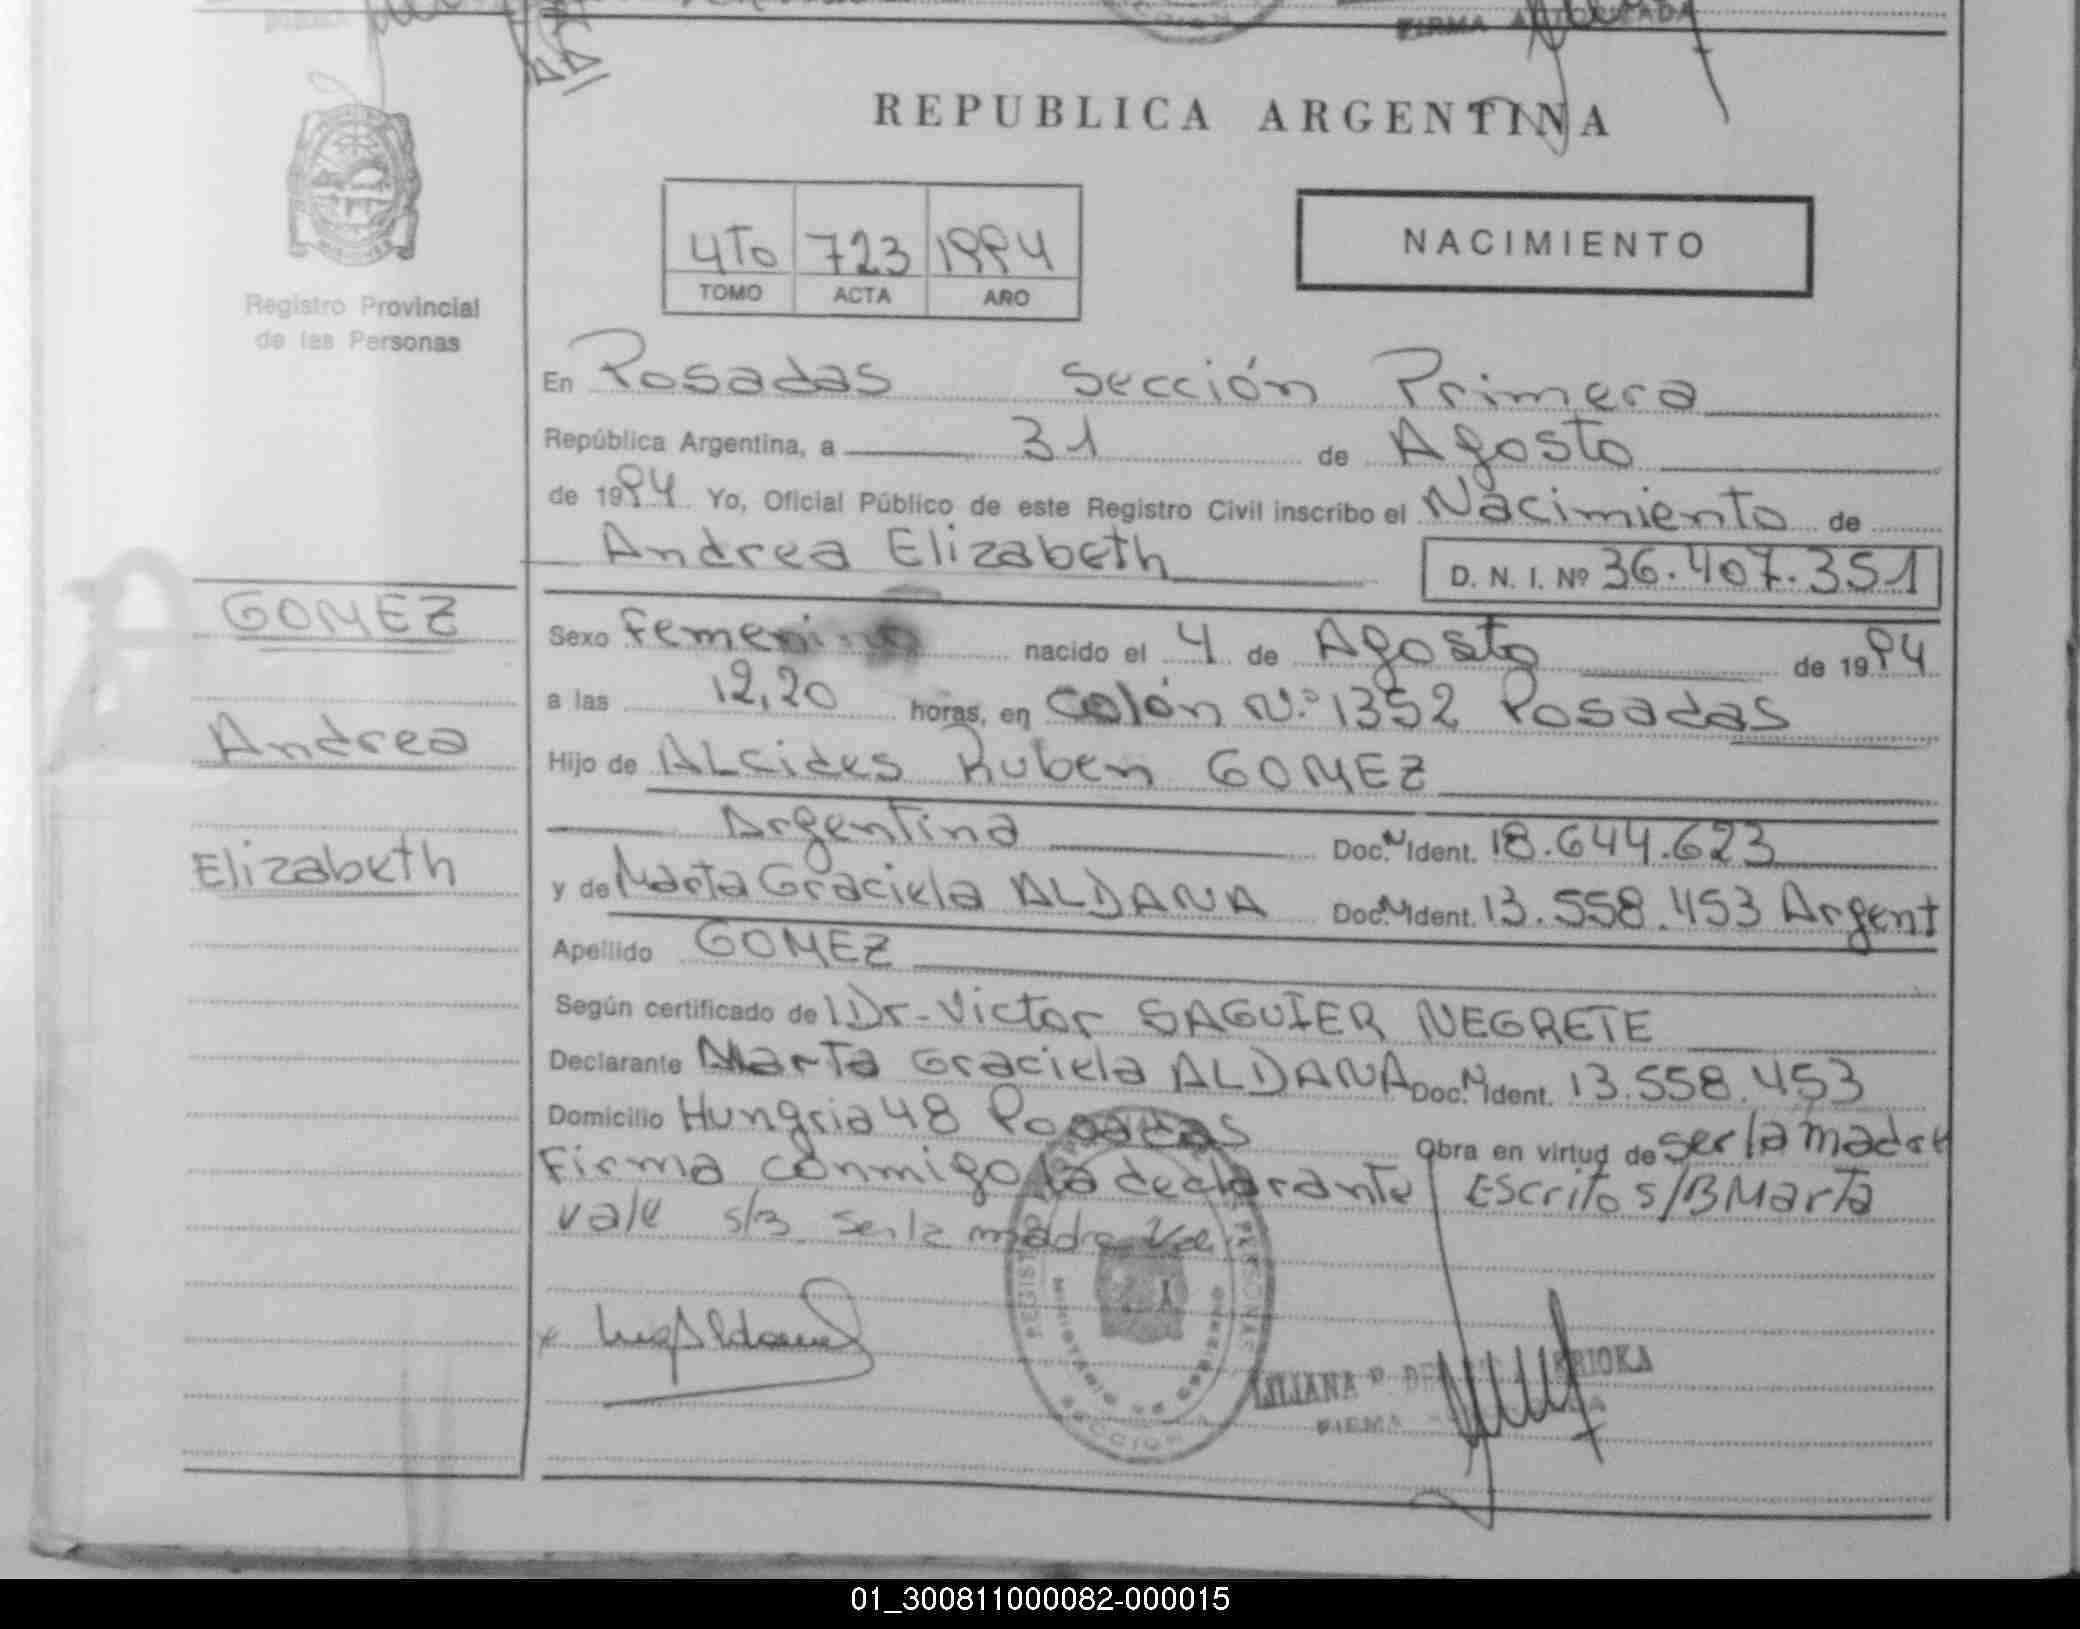 FIRMA AUTORIZADA
REPUBLICA ARGENTINA
4To 723 1994
TOMO ACTA ARO
NACIMIENTO
Registro Provincial
de las Personas
En Posadas Sección Primera
República Argentina, a 31 de Agosto
de 1994 Yo, Oficial Público de este Registro Civil inscribo el Nacimiento de
Andrea Elizabeth D. N. I. Nº 36.407.351
GOMEZ
Andrea
Elizabeth
Sexo Femenino nacido el 4 de Agosto de 1994
a las 12,20 horas, en Colón N.º 1352 Posadas
Hijo de ALcides Ruben GOMEZ
Argentina Doc. N Ident. 18.644.623
y de Marta Graciela ALDANA Doc. N Ident. 13.558.453 Argent
Apellido GOMEZ
Según certificado de l Dr. Victor SAGUIER NEGRETE
Declarante Marta Graciela ALDANA Doc. N Ident. 13.558.453
Domicilio Hungria 48 Posadas Obra en virtud de ser la madre
Firma conmigo la declarante Escrito s/B Marta
vale s/B ser la madre Vale
REGISTRO PERSONAS
MINISTERIO DE GOBIERNO
SECCION
LILIANA
FIRMA
01_300811000082-000015